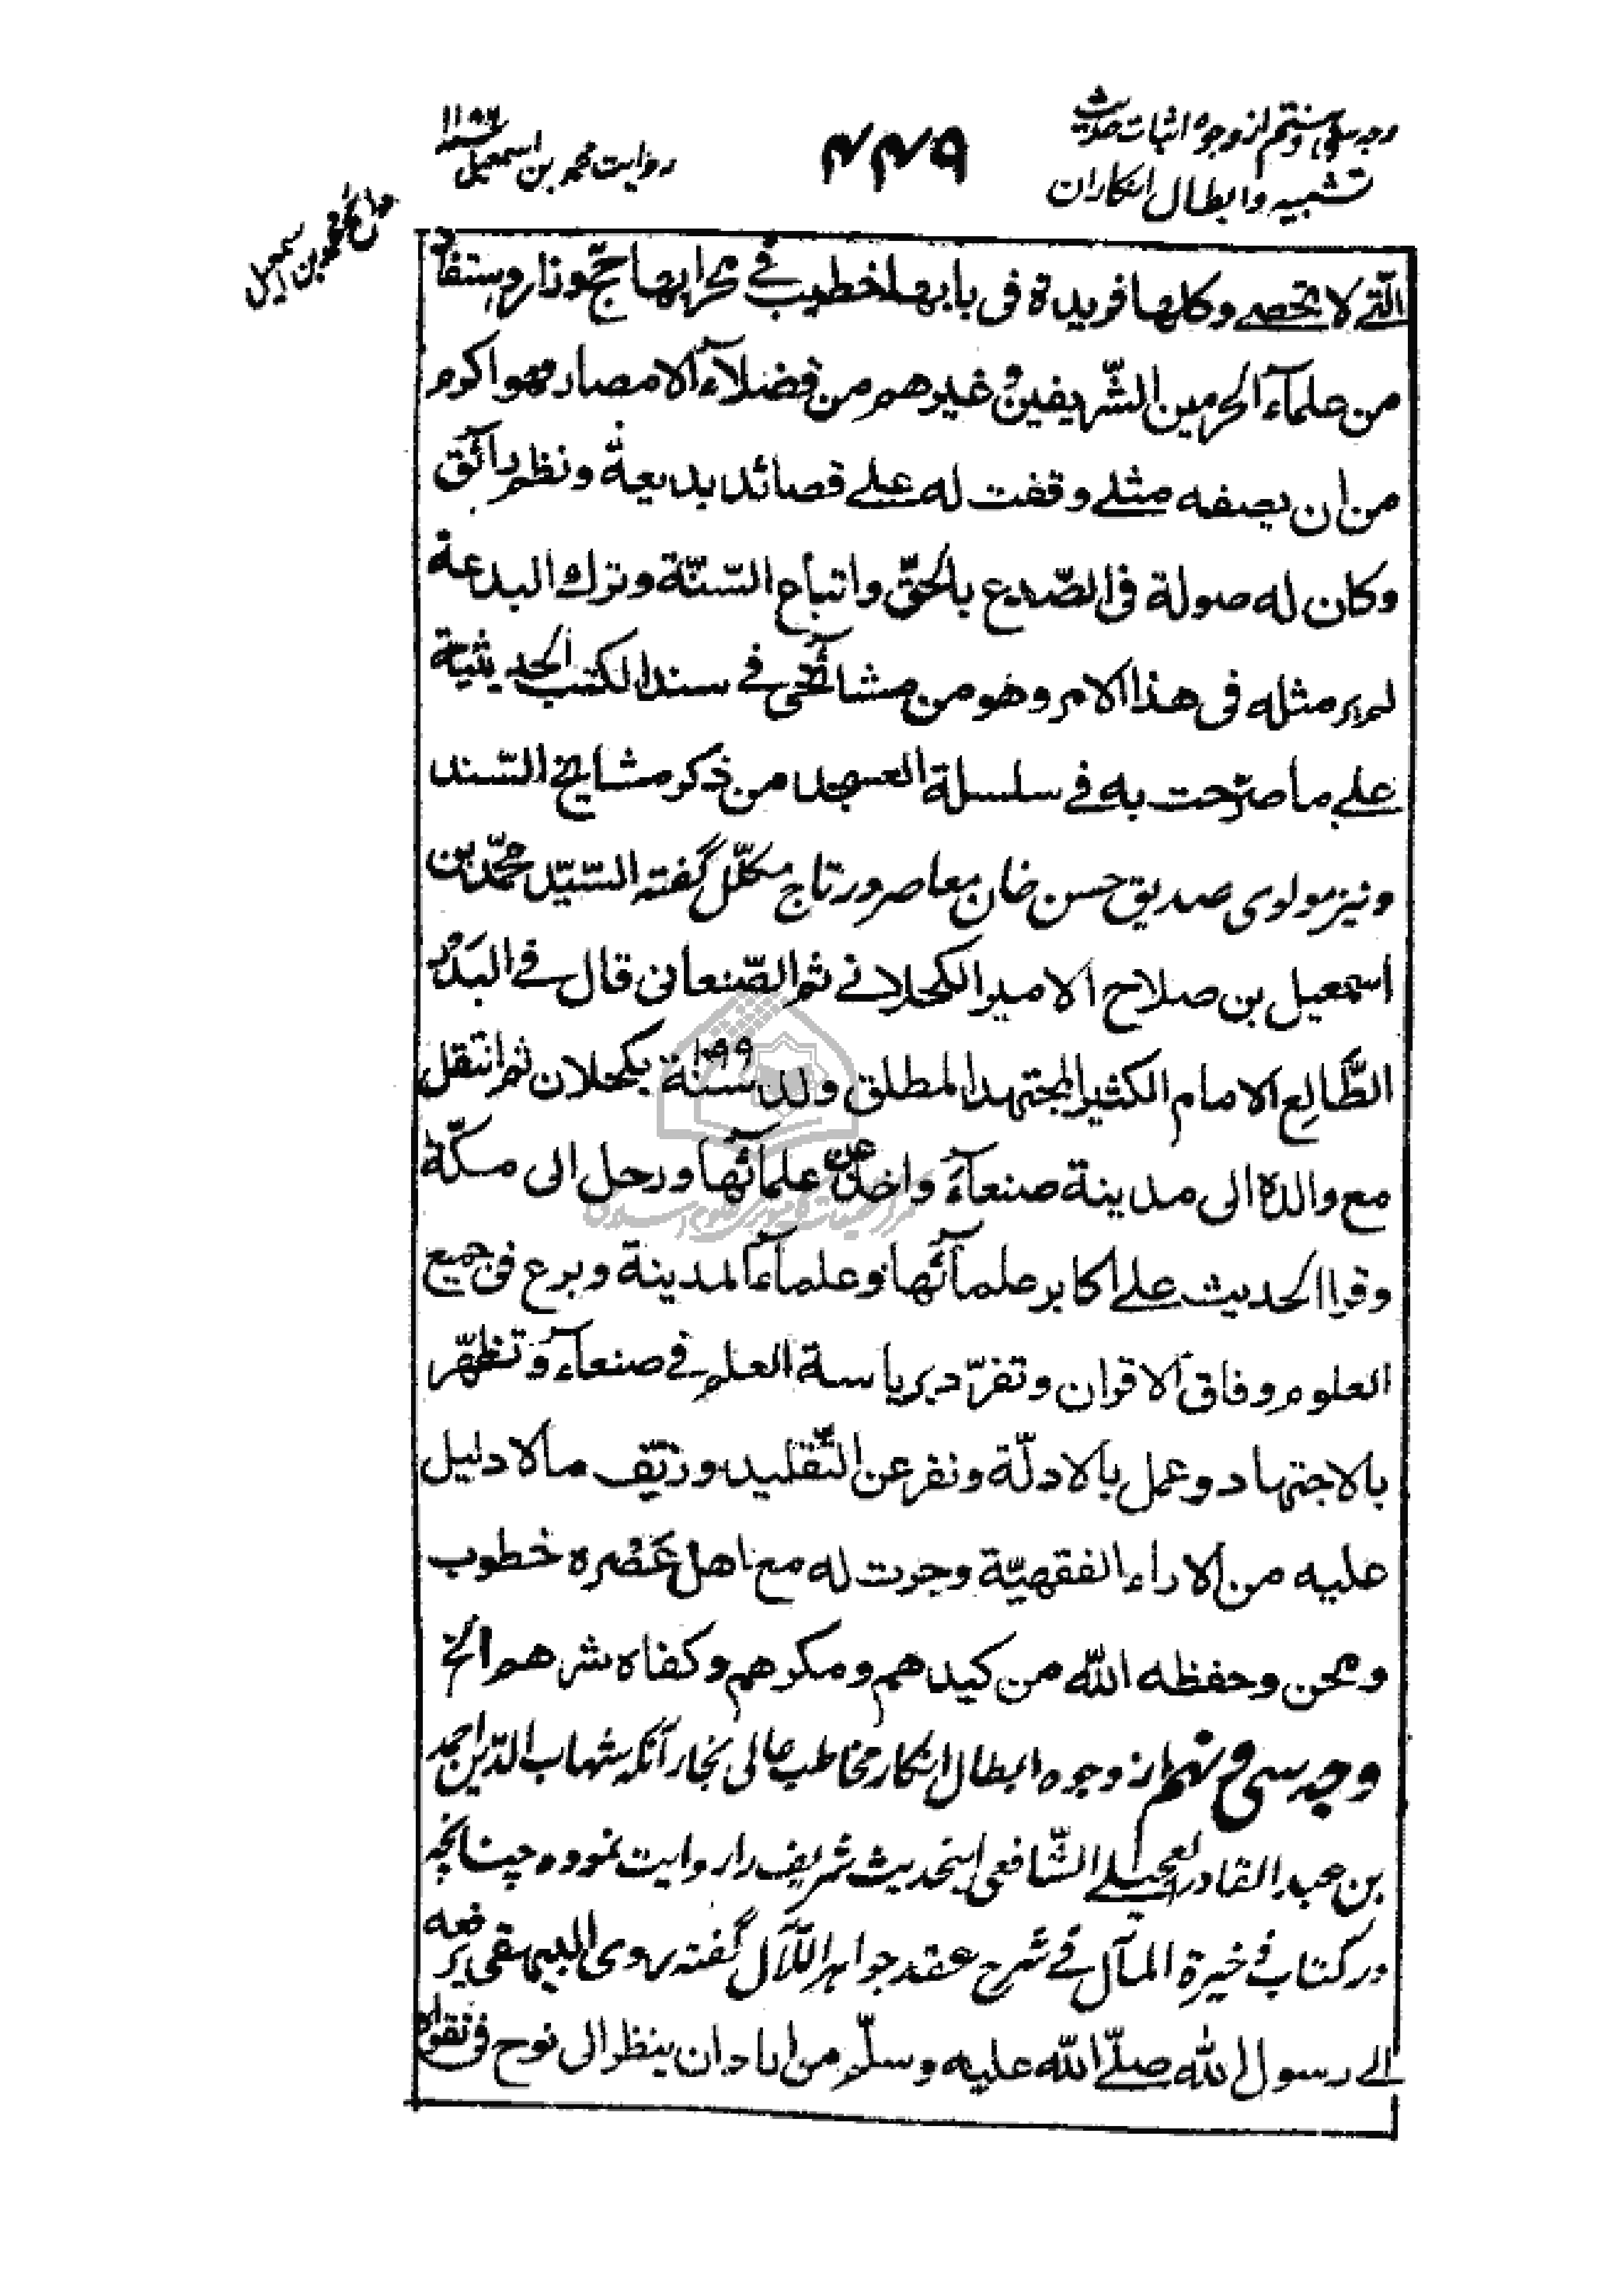 وجه سی و هشتم از وجوه اثبات حدیث
تشبیه و ابطال انکاران
۴۴۹
روایت محمد بن اسمعیل
مدائح محمد بن اسمعیل
الّتے لا تحصے وکلها فریدة فی بابها خطیب فے محرابها حجّ وزار واستفاد
من علمآء الحرمین الشّریفین وغیرهم من فضلآء الامصار فهو اکرم
من ان یصفه مثلے وقفت له علے قصائد بدیعة ونظم رآئق
وکان له صولة فی الصّدع بالحقّ واتباع السّنّة وترك البدعة
لم یر مثله فی هذا الامر وهو من مشآئخی فے سند الکتب الحدیثیة
علے ما صرّحت به فے سلسلة العسجد من ذکر مشایخ السّند
ونیز مولوی صدیق حسن خان معاصر در تاج مکلّل گفته السّیّد محمّد بن
اسمعیل بن صلاح الامیر الکحلانے ثم الصّنعانی قال فے البَدْر
الطَّالِع الامام الکثیر المجتهد المطلق ولد سنة ۱۰۹۹ بکحلان ثم انتقل
مع والده الی مدینة صنعآء واخذ عن علمآئها ورحل الی مکّة
وقرا الحدیث علے اکابر علمآئها وعلمآء المدینة وبرع فی جمیع
العلوم وفاق الاقران وتفرّد بریاسة العلم فے صنعآء وتظهّر
بالاجتهاد وعمل بالادلّة ونفر عن التّقلید وزیّف مالا دلیل
علیه من الاراء الفقهیّة وجرت له مع اهل عَصْره خطوب
ومحن وحفظه الله من کیدهم ومکرهم وکفاه شرهم الخ
وجه سی و نهم از وجوه ابطال انکار مخاطب عالی نجار آنکه شهاب الدّین احمد
بن عبد القادر العجیلے الشّافعی اینحدیث شریف را روایت نموده چنانچه
در کتاب ذخیرة المآل فے شرح عقد جواهر اللآل گفته روی البیهقی یرفعه
الے رسول الله صلّے الله علیه وسلّم من اراد ان ینظر الی نوح فی تقواه